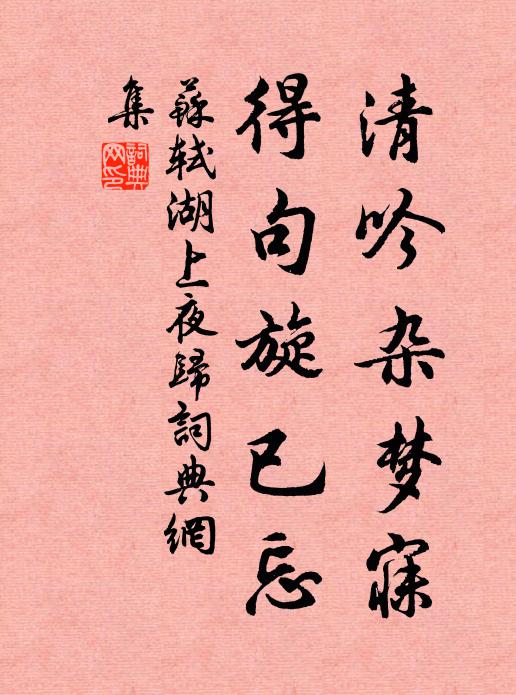 清吟杂梦寐
得句旋已忘
蘇轼湖上夜歸詞典網
集
詞典
网印